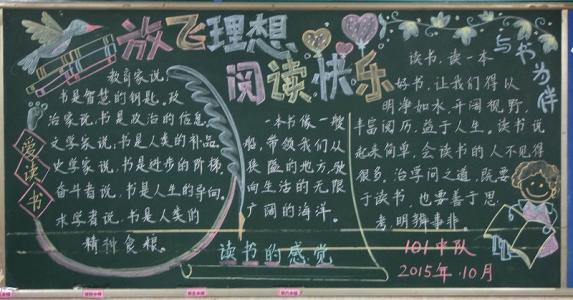 放飞理想
阅读·快乐
与书为伴
爱读书
教育家说,
书是智慧的钥匙。政
治家说,书是政治的信息,
文学家说,书是人类的补品,
史学家说,书是进步的阶梯,
奋斗者说,书是人生的导向。
求学者说,书是人类的
精神食粮。
一本书像一艘
船,带领我们从
狭隘的地方,驶
向生活的无限
广阔的海洋。
读书的感觉
读书,读一本
好书,让我们得以
明净如水,开阔视野,
丰富阅历,益于人生。读书说
起来简单,会读书的人不见得
很多,治学问之道,既要
于读书,也要善于思
考,明辨事非。
101中队
2015年·10月